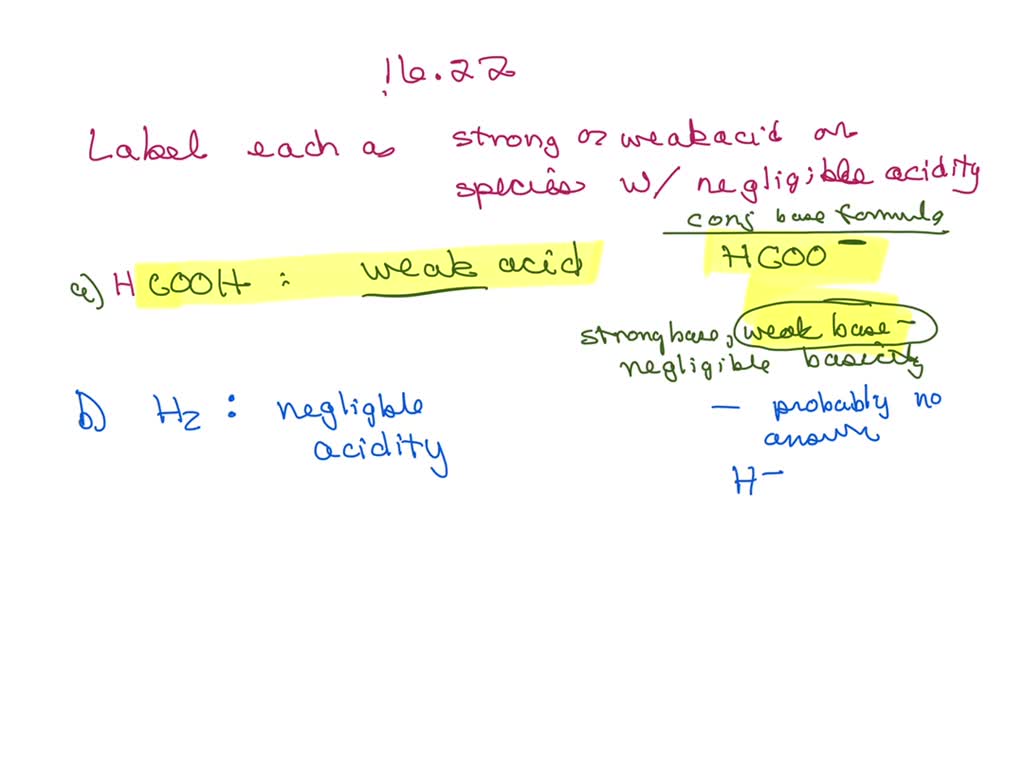 16.22
Label each as strong or weak acid or
species w/ negligible acidity
conj base formula
a) HCOOH : weak acid HCOO⁻
strong base, weak base –
negligible basicity
b) H₂ : negligble
acidity
— probably no
answer
H⁻